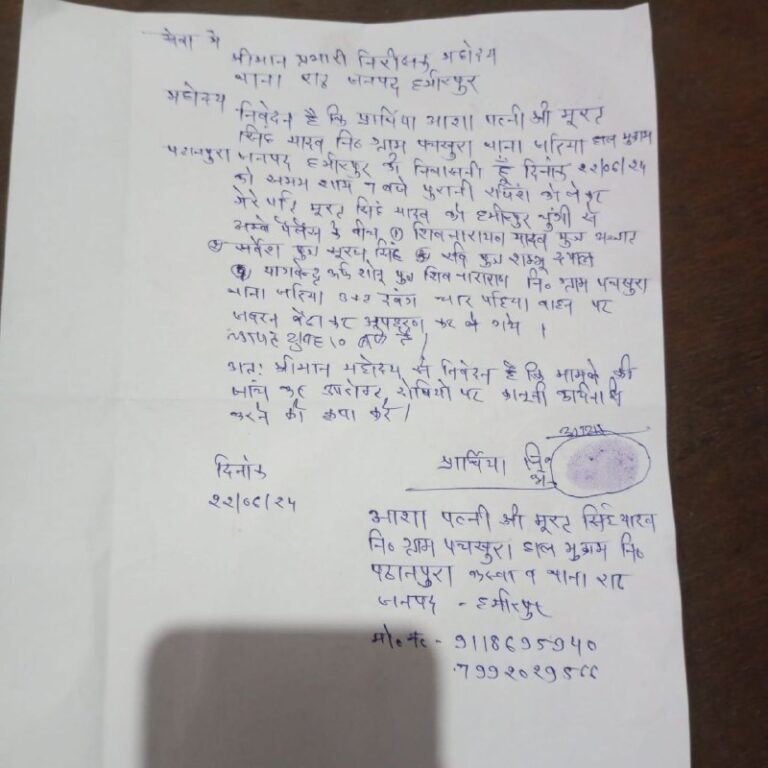 सेवा में
श्रीमान प्रभारी निरीक्षक महोदय
थाना राठ जनपद हमीरपुर
महोदय
निवेदन है कि प्रार्थिया आशा पत्नी श्री मूरत
सिंह यादव नि० ग्राम पचखुरा थाना जरिया हाल मुकाम
पठानपुरा जनपद हमीरपुर की निवासनी हूँ दिनांक २२/०६/२४
को समय शाम 7 बजे पुरानी रंजिश को लेकर
मेरे पति मूरत सिंह यादव को हमीरपुर चुंगी से
पैलेस के बीच ① शिवनारायन यादव पुत्र अज्ञात
② सर्वेश पुत्र सूरज सिंह ③ रवि पुत्र शम्भू दयाल
④ पुत्र शिवनारायण नि० ग्राम पचखुरा
थाना जरिया चार पहिया वाहन पर
जबरन बैठाकर अपहरण कर ले गये ।
अतः श्रीमान महोदय से निवेदन है कि मामले की
जांच कर उपरोक्त दोषियों पर कानूनी कार्यवाही
करने की कृपा करें ।
दिनांक
२२/०६/२४
प्रार्थिया नि० अ०
आशा पत्नी श्री मूरत सिंह यादव
नि० ग्राम पचखुरा हाल मुकाम नि०
पठानपुरा कस्बा व थाना राठ
जनपद - हमीरपुर
मो० नं० - 9118695940
7992029566